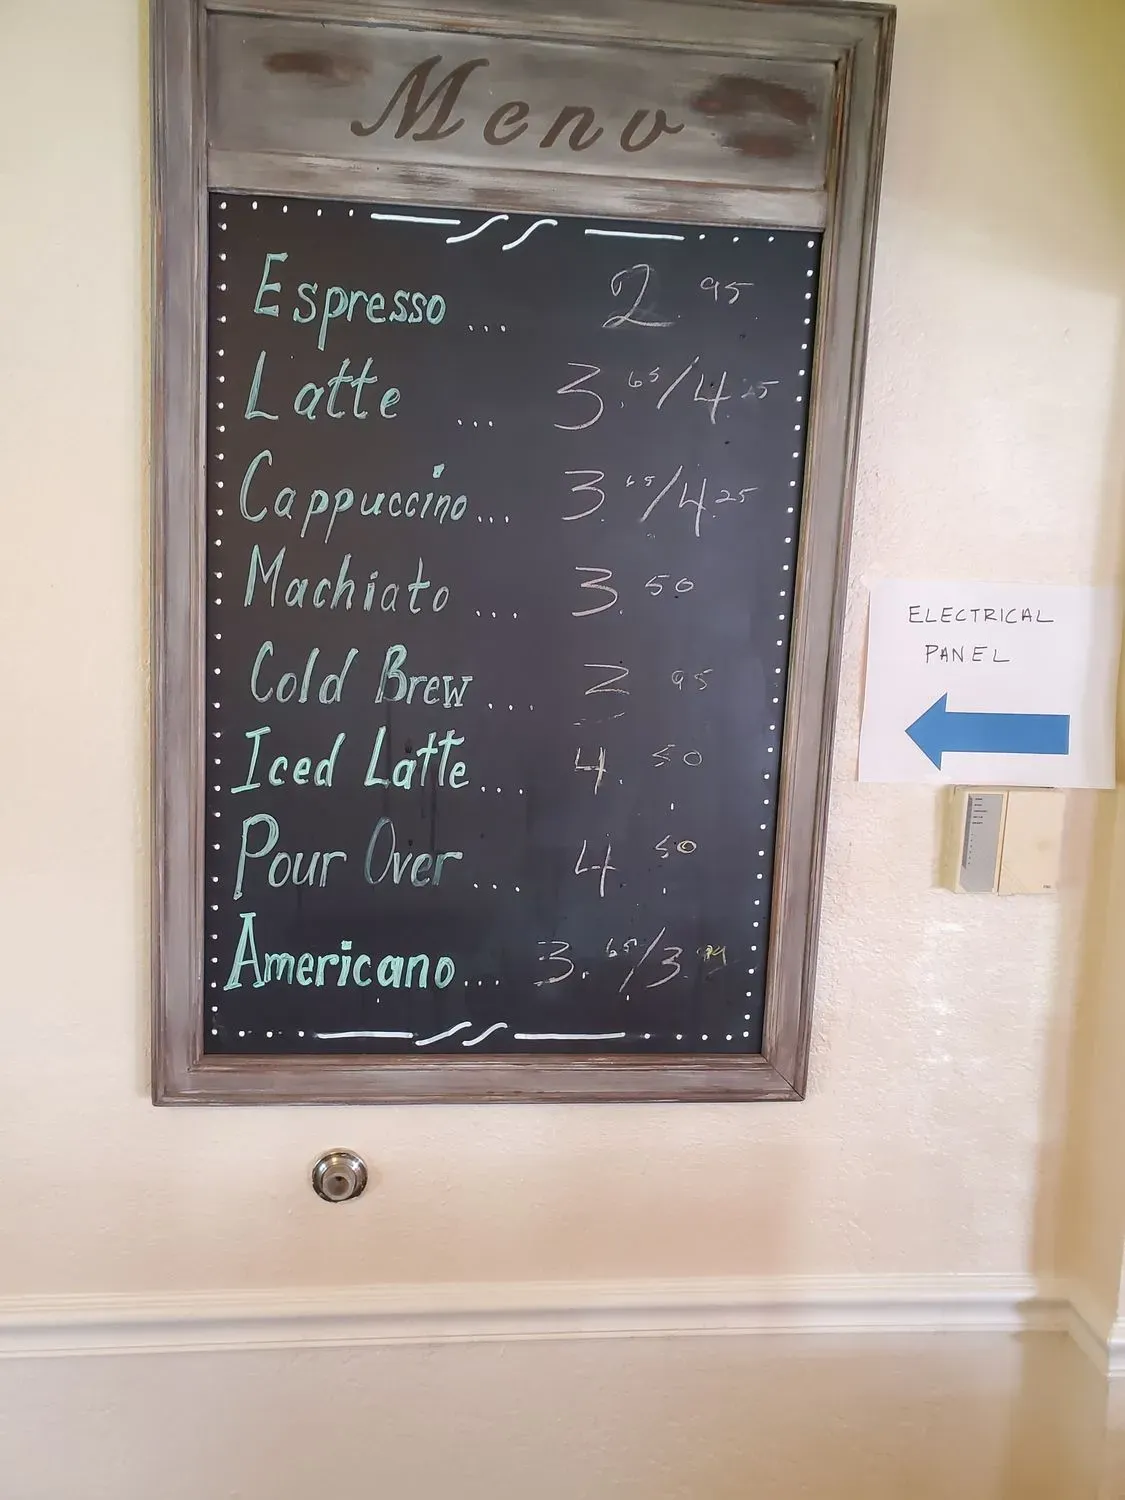 Menu
Espresso ... 2.95
Latte ... 3.65/4.25
Cappuccino... 3.65/4.25
Machiato ... 3.50
Cold Brew ... 2.95
Iced Latte... 4.50
Pour Over ... 4.50
Americano... 3.65/3.
ELECTRICAL
PANEL